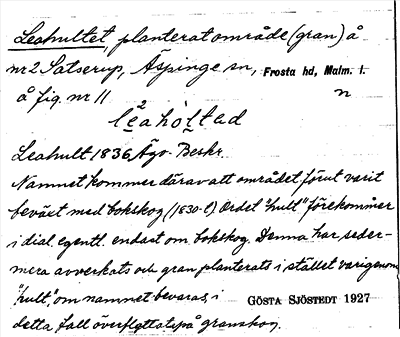 Leahultet, planterat område (gran) å
nr 2 Satserup, Äspinge sn, Frosta hd, Malm. l.
å fig. nr 11 n
leahol̥tad
Leahult 1836 Ägo-Beskr.
Namnet kommer därav att området förut varit
beväxt med bokskog (1830-t) Ordet "hult" förekommer
i dial. egentl. endast om bokskog. Denna har seder-
mera avverkats och gran planterats i stället varigenom
"hult" om namnet bevaras, i
GÖSTA SJÖSTEDT 1927
detta fall överflyttats på granskog.